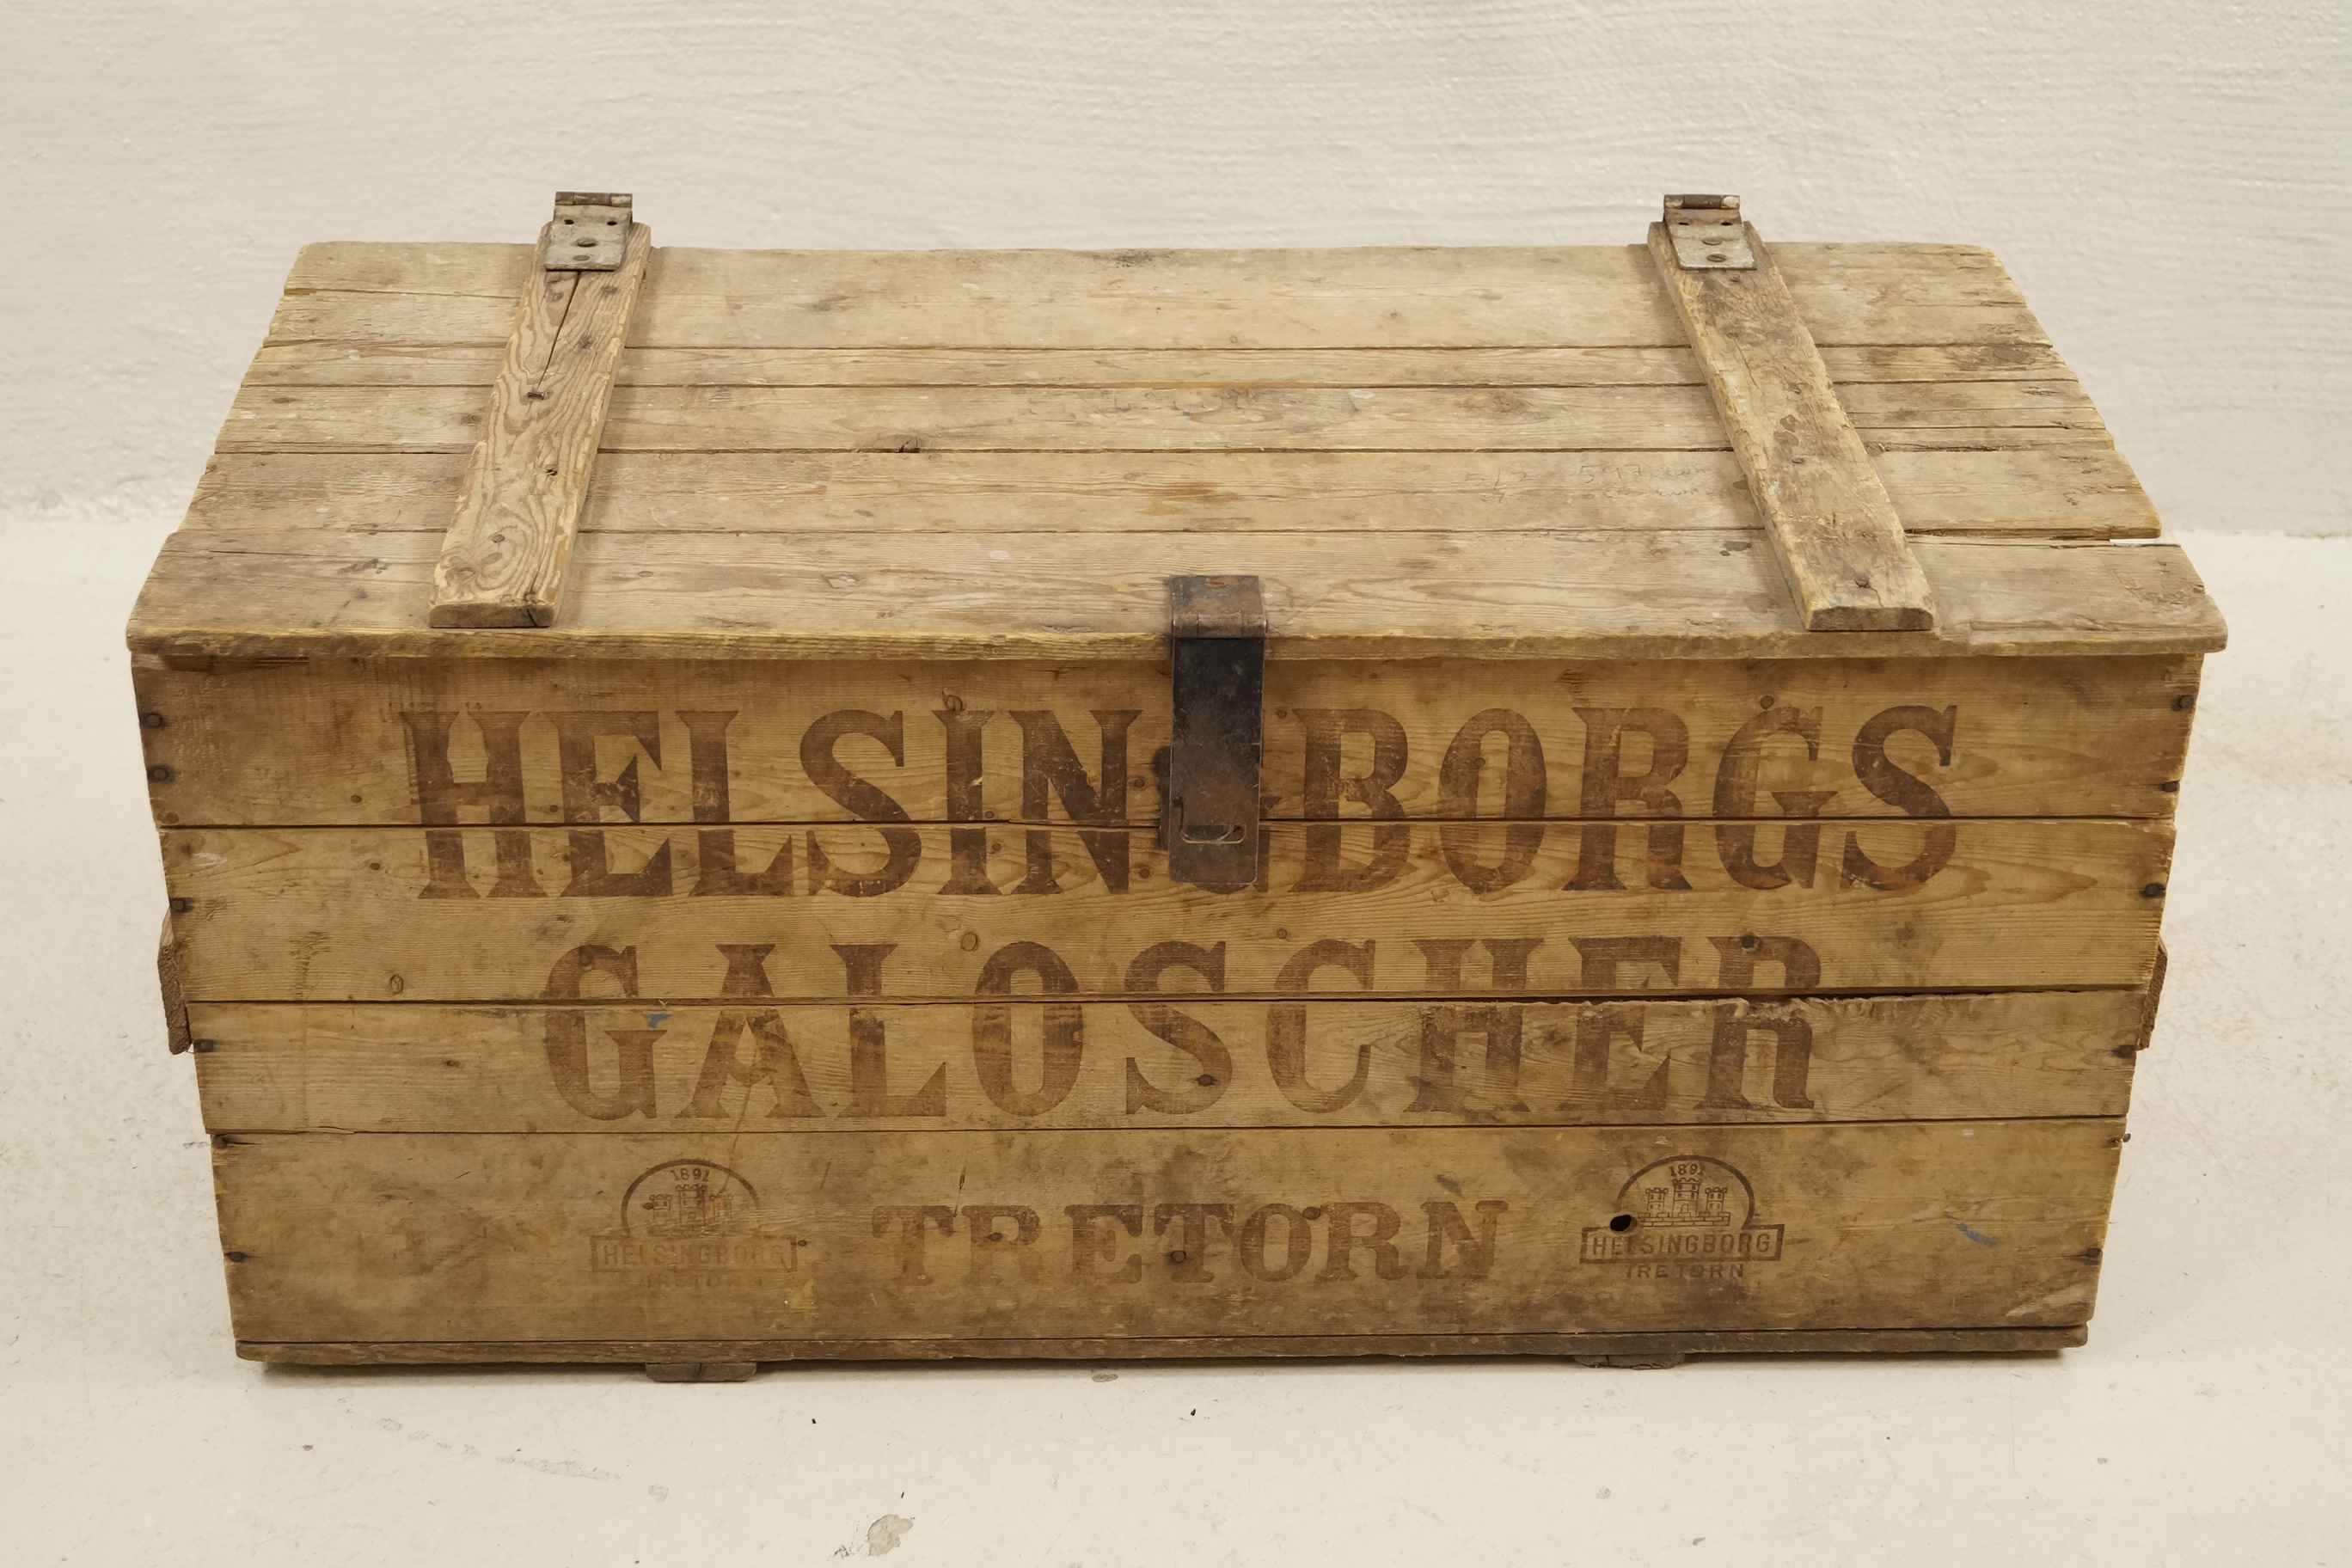 HELSINGBORGS
GALOSCHER
1891
HELSINGBORG
TRETORN
TRETORN
1891
HELSINGBORG
TRETORN